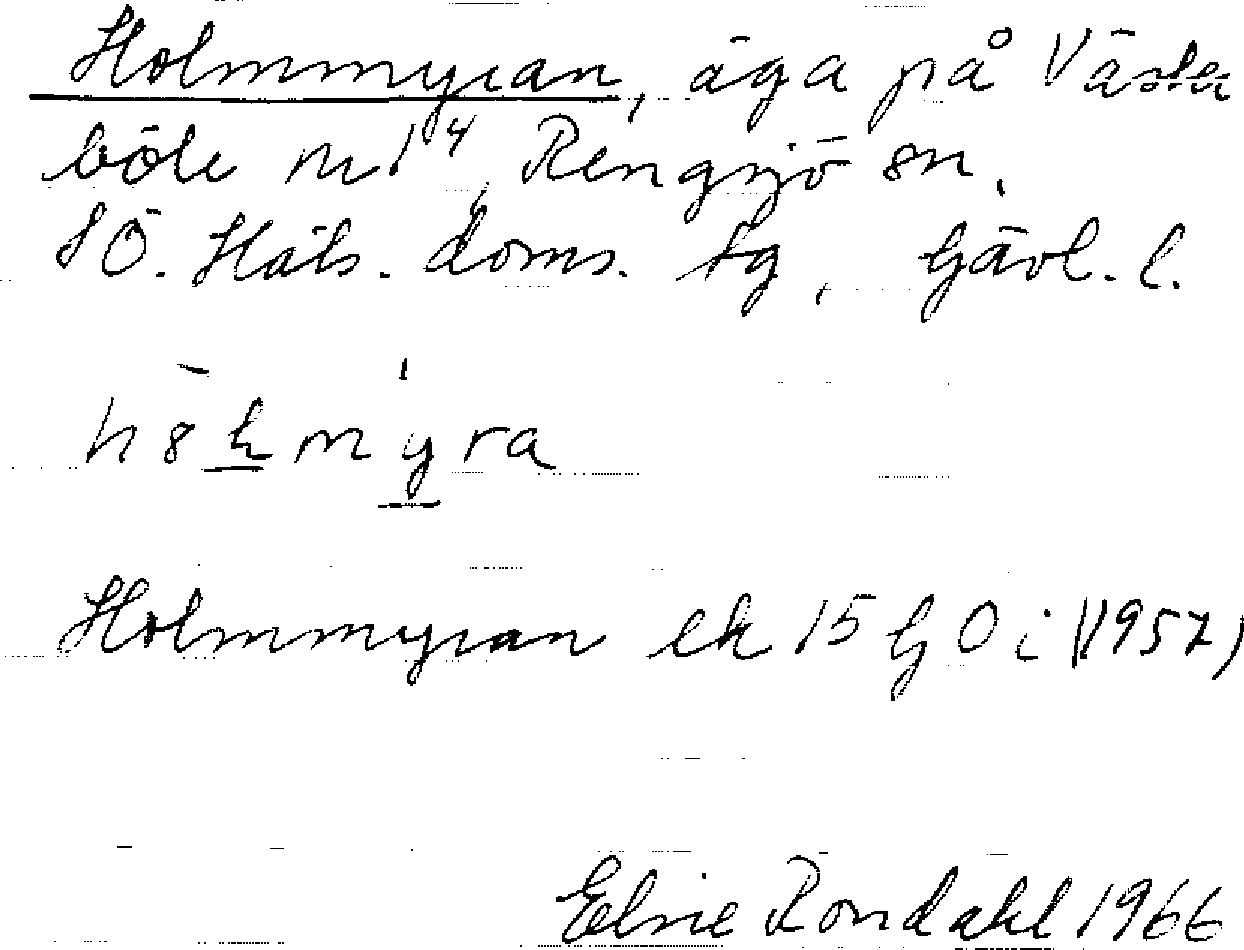 Holmmyran, äga på Väster
böle nr 1⁴, Rengsjö sn,
SÖ. Häls. doms. tg, Gävl. l.
Holmmyran ek 15 G 0 i (1957)
Elsie Rondahl 1966